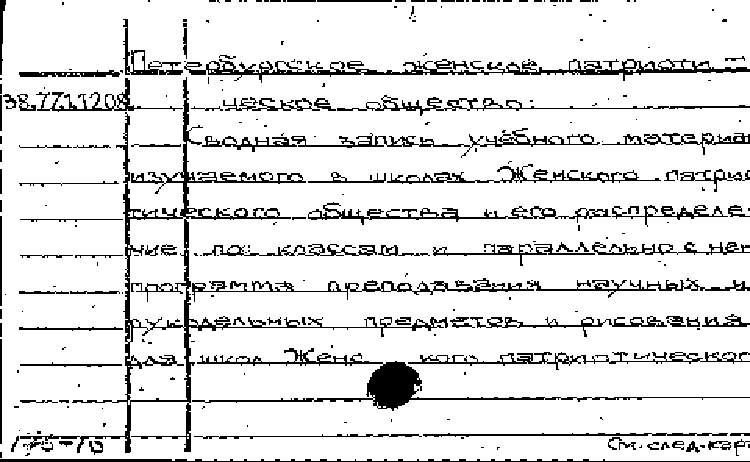 Петербургское женское патриоти-
38.7711208 ческое общество.
Сводная запись учебного материа
изучаемого в школах Женского патрио
тического общества и его распределе-
ние по классам и параллельно с ней
программа преподавания научных и
рукодельных предметов и рисования
для школ Женс кого патриотического
См. след. карт